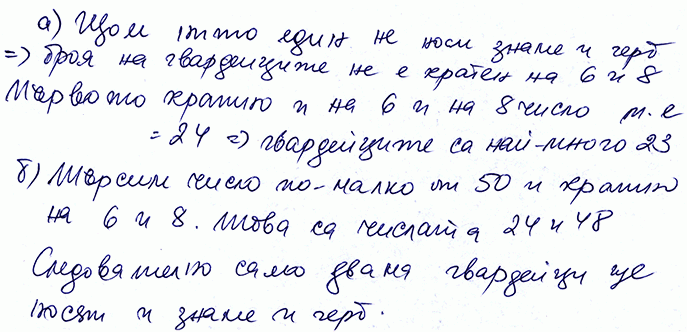 а) Щом нито един не носи знаме и герб
=> броя на гвардейците не е кратен на 6 и 8
Първото кратно и на 6 и на 8 число т.е
= 24 => гвардейците са най-много 23
б) Търсим число по-малко от 50 и кратно
на 6 и 8. Това са числата 24 и 48
Следователно само двама гвардейци ще
носят и знаме и герб.